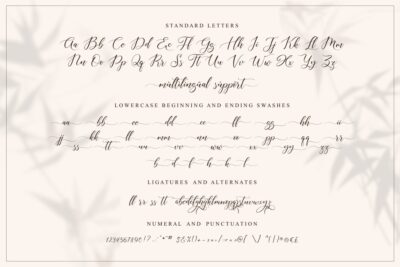 STANDARD LETTERS
Aa Bb Cc Dd Ee Ff Gg Hh Ii Jj Kk Ll Mm
Nn Oo Pp Qq Rr Ss Tt Uu Vv Ww Xx Yy Zz
multilingual support
LOWERCASE BEGINNING AND ENDING SWASHES
aa cc dd ee ff gg hh ii
jj kk ll mm nn ee pp qq rr
ss tt uu vv ww xx yy zz
b d f h k l
LIGATURES AND ALTERNATES
ll rr ss tt abcdefghijklmnopqrstuvwxyz
NUMERAL AND PUNCTUATION
1234567890